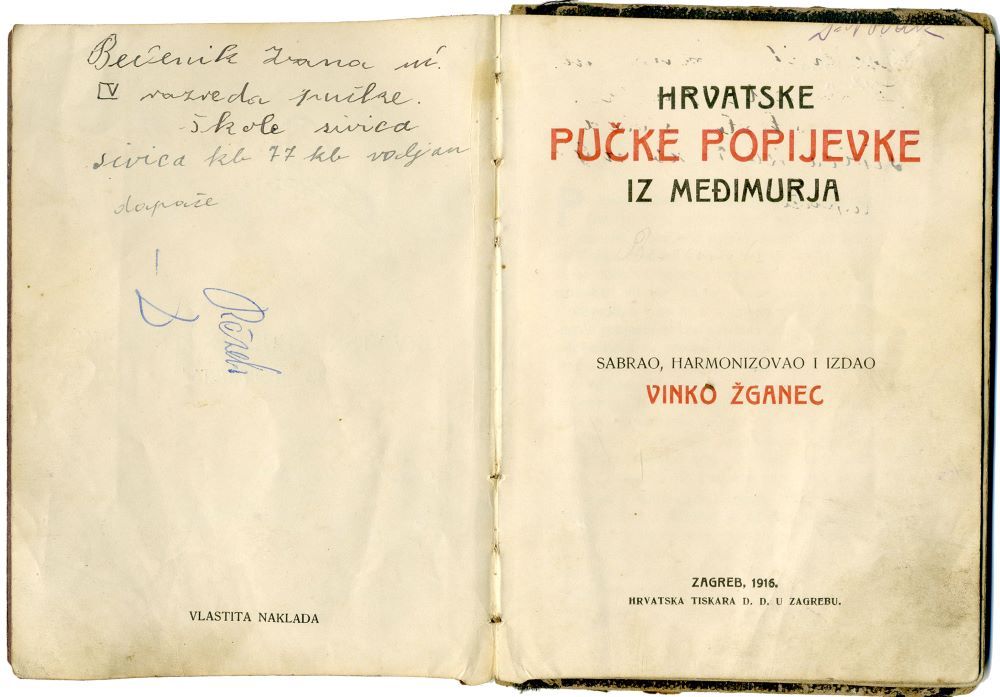 Bečenik Ivana
V razreda pučke.
škole sivica
sivica kb 77 kb
VLASTITA NAKLADA
HRVATSKE
PUČKE POPIJEVKE
IZ MEĐIMURJA
SABRAO, HARMONIZOVAO I IZDAO
VINKO ŽGANEC
ZAGREB, 1916.
HRVATSKA TISKARA D. D. U ZAGREBU.